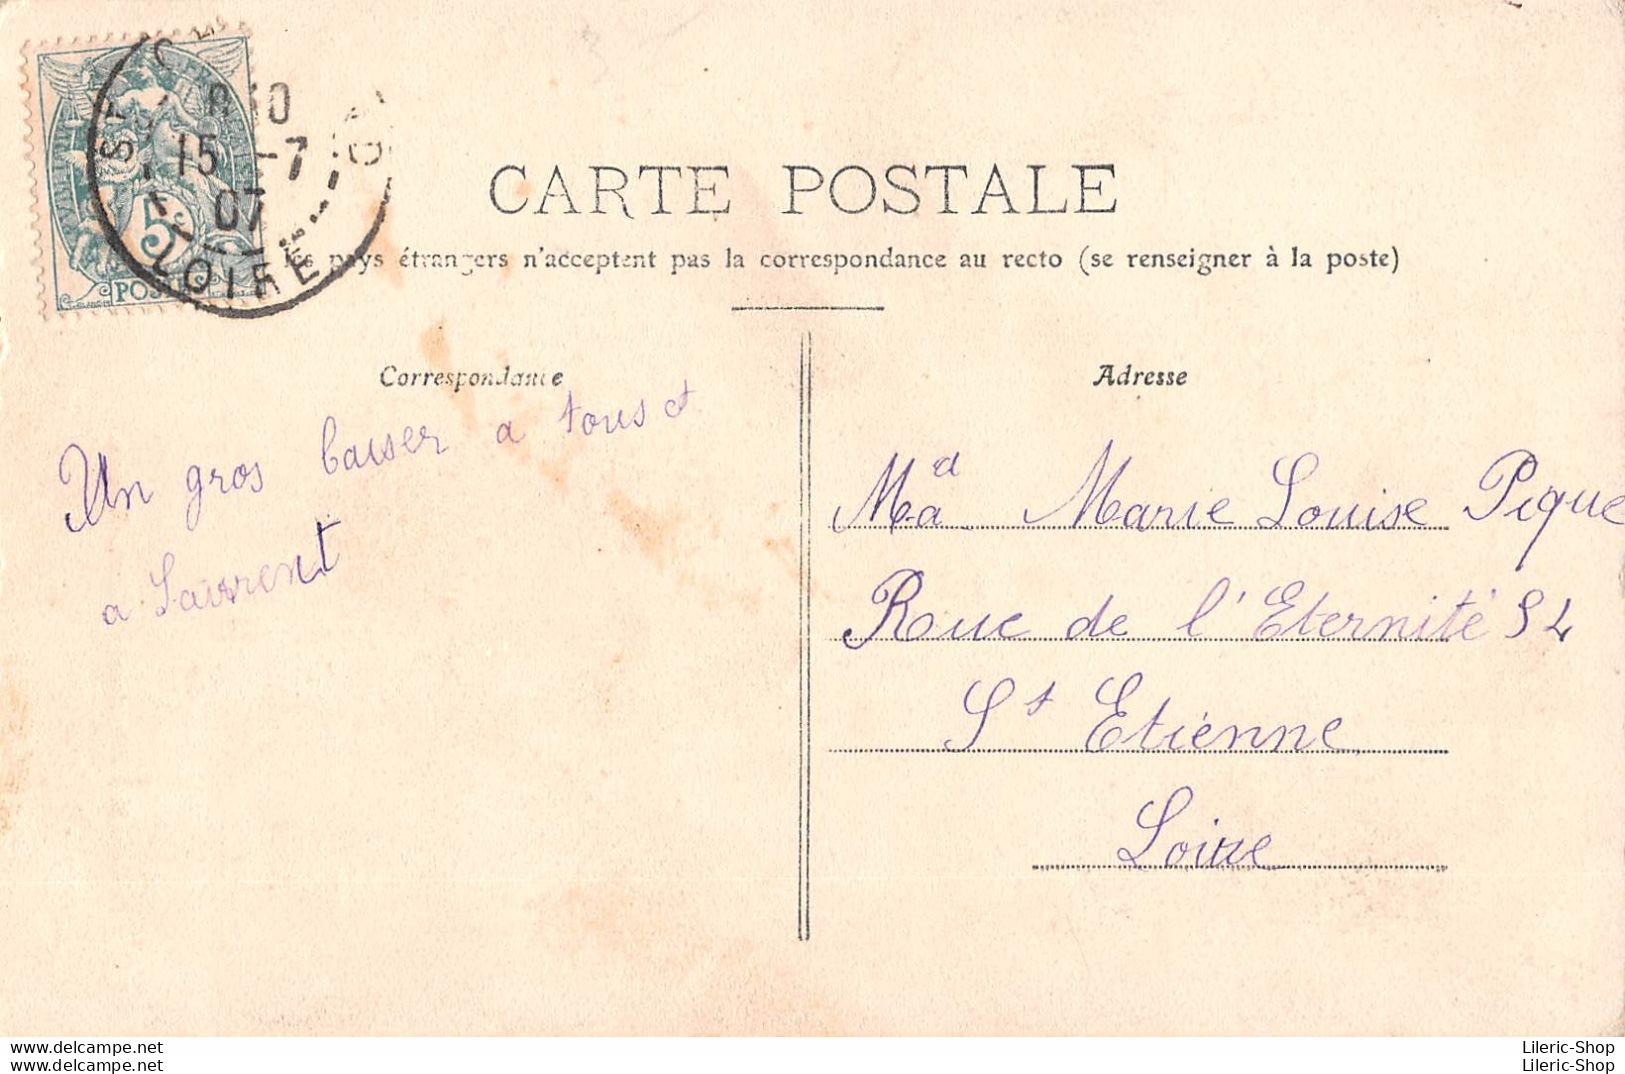 8 30
15 -7
07
LOIRE
5c
POSTES
CARTE POSTALE
pays étrangers n'acceptent pas la correspondance au recto (se renseigner à la poste)
Correspondance
Un gros baiser a tous et
a Laurent
Adresse
Md Marie Louise Pique
Rue de l'Eternité 54
St Etienne
Loire
www.delcampe.net
www.delcampe.net
Lileric-Shop
Lileric-Shop